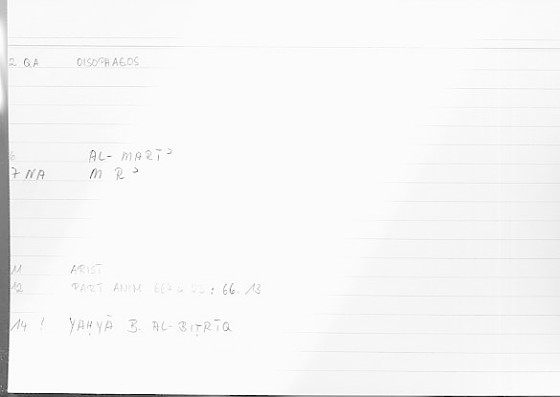 2 QA OISOPHAGOS
6 AL-MARĪʾ
7 NA M R ʾ
11 ARIST
12 PART ANIM : 66.13
14 ! YAḤYĀ B. AL-BIṬRĪQ